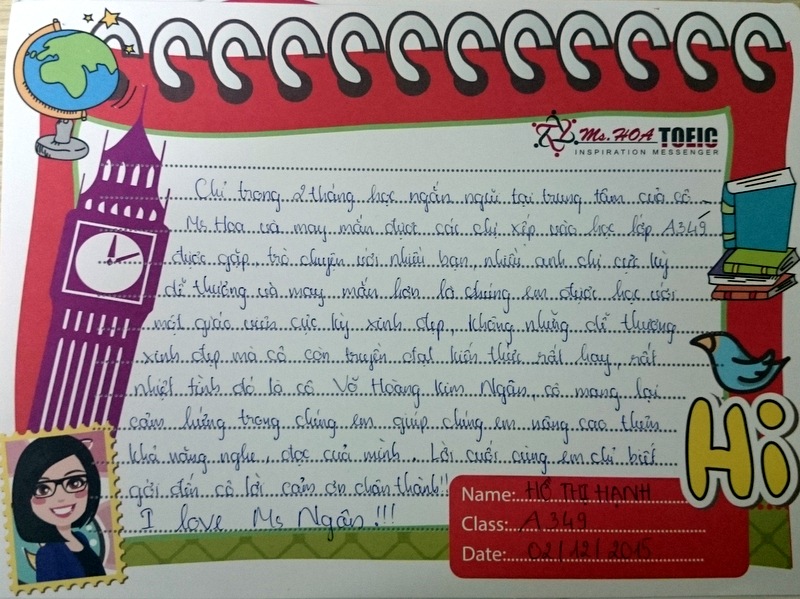 Ms. HOA TOEIC
INSPIRATION MESSENGER
Chỉ trong 2 tháng học ngắn ngủi tại trung tâm của cô
Ms Hoa và may mắn được các chị xếp vào học lớp A349
được gặp, trò chuyện với nhiều bạn, nhiều anh chị cực kỳ
dễ thương và may mắn hơn là chúng em được học với
một giáo viên cực kỳ xinh đẹp, không những dễ thương
xinh đẹp mà cô còn truyền đạt kiến thức rất hay, rất
nhiệt tình đó là cô Võ Hoàng Kim Ngân, cô mang lại
cảm hứng trong chúng em giúp chúng em nâng cao thêm
khả năng nghe, đọc của mình. Lời cuối cùng em chỉ biết
gởi đến cô lời cảm ơn chân thành!!
I love Ms Ngân!!!
Hi
Name: HỒ THỊ HẠNH
Class: A349
Date: 02/12/2015